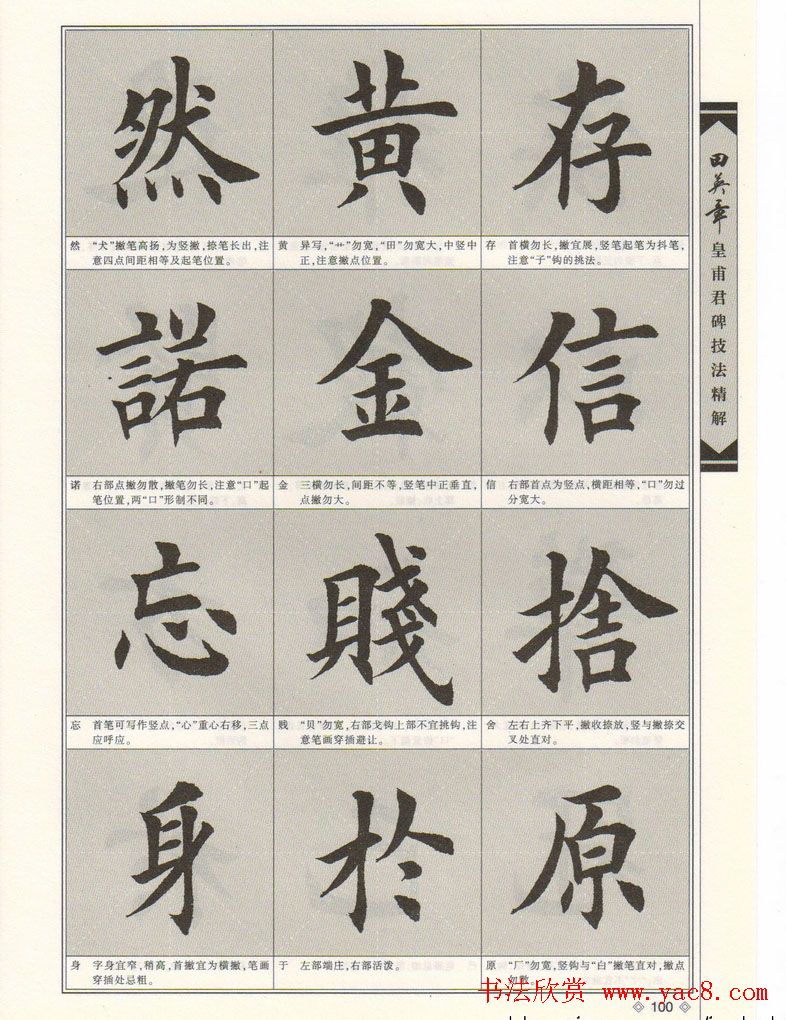 然
黄
存
然 “犬”撇笔高扬，为竖撇，捺笔长出，注
意四点间距相等及起笔位置。
黄 异写，“艹”勿宽，“田”勿宽大，中竖中
正，注意撇点位置。
存 首横勿长，撇宜展，竖笔起笔为抖笔，
注意“子”钩的挑法。
諾
金
信
诺 右部点撇勿散，撇笔勿长，注意“口”起
笔位置，两“口”形制不同。
金 三横勿长，间距不等，竖笔中正垂直，
点撇勿大。
信 右部首点为竖点，横距相等，“口”勿过
分宽大。
忘
賤
捨
忘 首笔可写作竖点，“心”重心右移，三点
应呼应。
贱 “贝”勿宽，右部戈钩上部不宜挑钩，注
意笔画穿插避让。
舍 左右上齐下平，撇收捺放，竖与撇捺交
叉处直对。
身
於
原
身 字身宜窄，稍高，首撇宜为横撇，笔画
穿插处忌粗。
于 左部端庄，右部活泼。
原 “厂”勿宽，竖钩与“白”撇笔直对，撇点
田英章皇甫君碑技法精解
书法欣赏 www.yac8.com
100